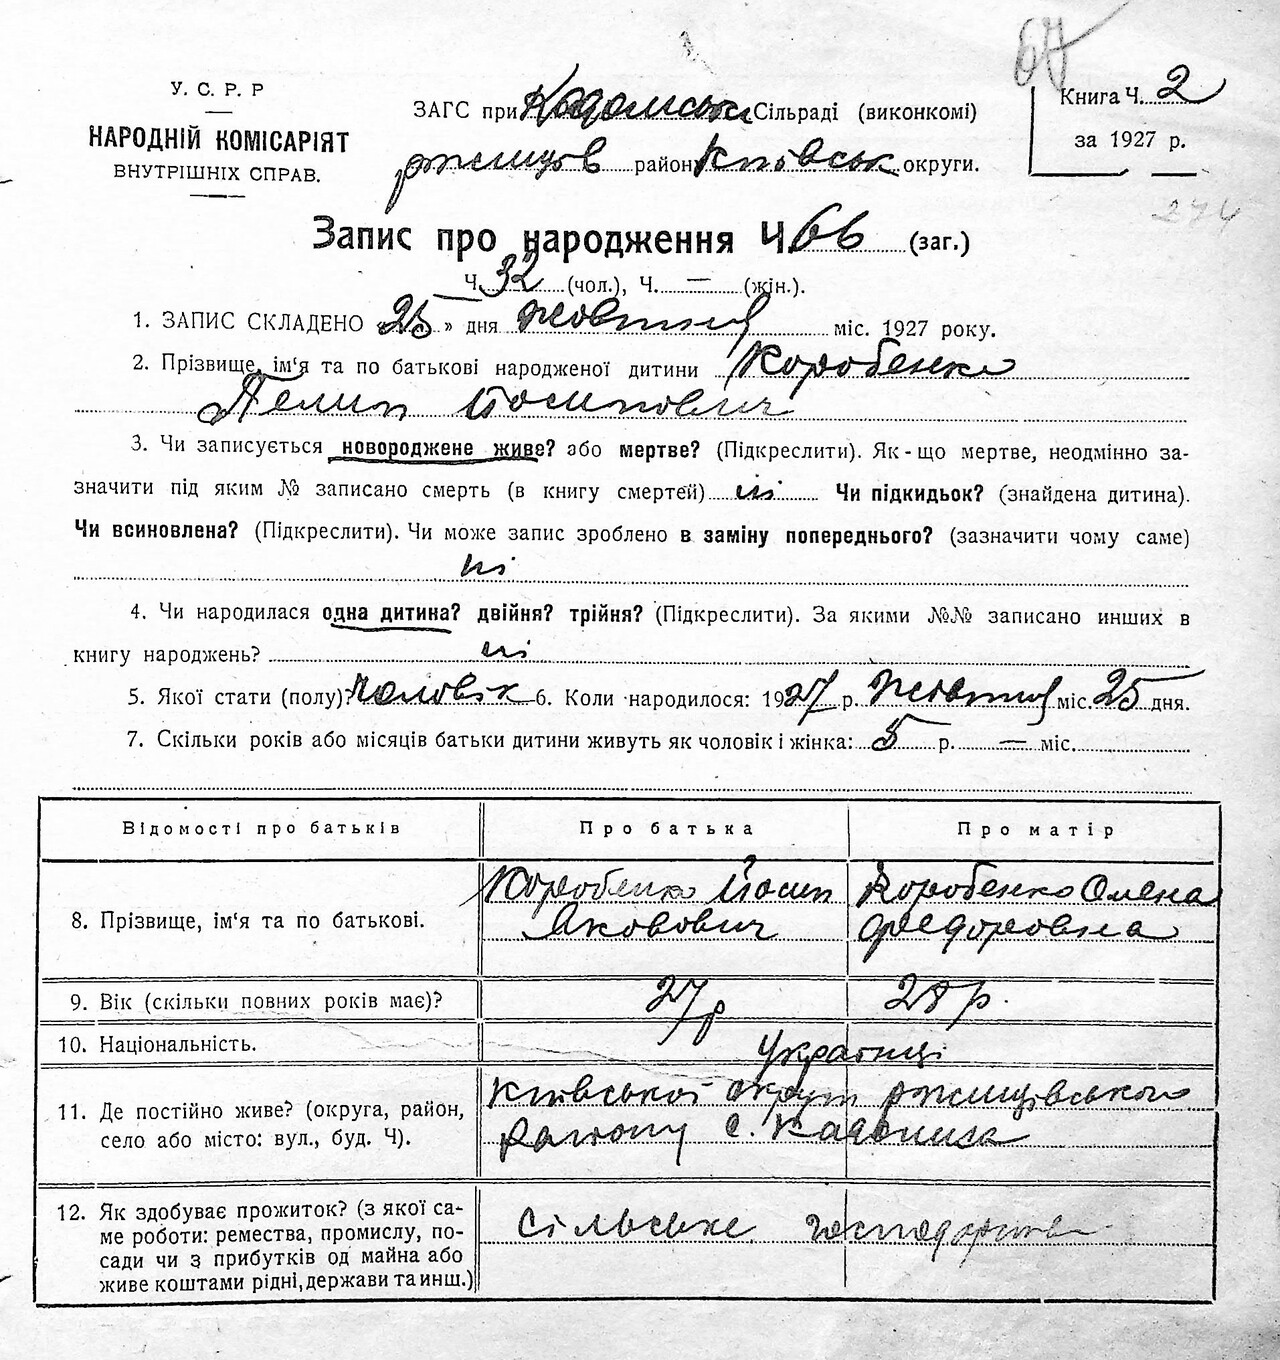 67
У. С. Р. Р
НАРОДНІЙ КОМІСАРІЯТ
ВНУТРІШНІХ СПРАВ.
ЗАГС при Кадомськ Сільраді (виконкомі)
ржищев район Київськ округи.
Книга Ч. 2
за 1927 р.
274
Запис про народження Ч 66 (заг.)
Ч. 32 (чол.), Ч. — (жін.).
1. ЗАПИС СКЛАДЕНО «25» дня жовтня міс. 1927 року.
2. Прізвище, ім‘я та по батькові народженої дитини Коробенко
Пелип Йосипович
3. Чи записується новороджене живе? або мертве? (Підкреслити). Як-що мертве, неодмінно за-
значити під яким № записано смерть (в книгу смертей) ні Чи підкидьок? (знайдена дитина).
Чи всиновлена? (Підкреслити). Чи може запис зроблено в заміну попереднього? (зазначити чому саме)
ні
4. Чи народилася одна дитина? двійня? трійня? (Підкреслити). За якими №№ записано инших в
книгу народжень? ні
5. Якої стати (полу)? чоловік 6. Коли народилося: 1927 р. жовтня міс. 25 дня.
7. Скільки років або місяців батьки дитини живуть як чоловік і жінка: 5 р. — міс.
Відомості про батьків Про батька Про матір
8. Прізвище, ім‘я та по батькові. Коробенко Йосип Коробенко Олена
Яковович Федоровна
9. Вік (скільки повних років має)? 27 р 28 р.
10. Національність. Українці
11. Де постійно живе? (округа, район, село або місто: вул., буд. Ч). Київської округи ржищівського
району с. Кадомка
12. Як здобуває прожиток? (з якої са-
ме роботи: ремества, промислу, по-
сади чи з прибутків од майна або
живе коштами рідні, держави та инш.) сільське господарство